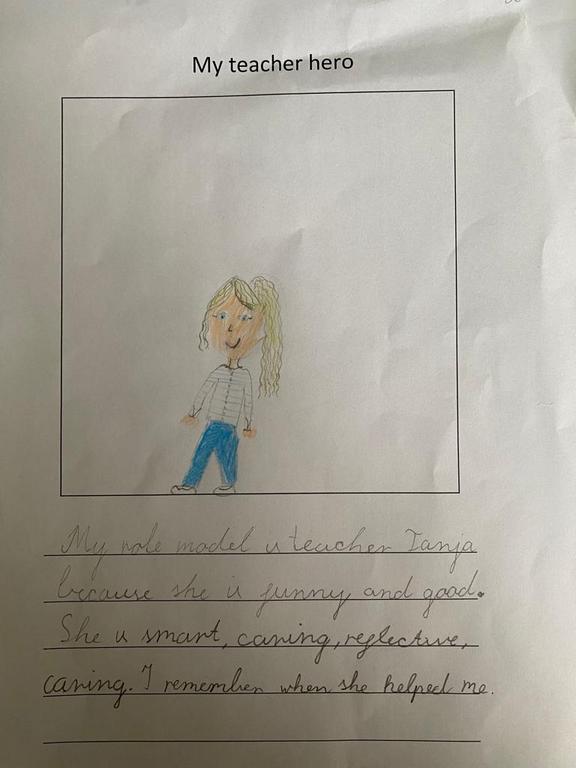 My teacher hero
My role model is teacher Tanja
because she is funny and good.
She is smart, caring, reflective,
caring. I remember when she helped me.